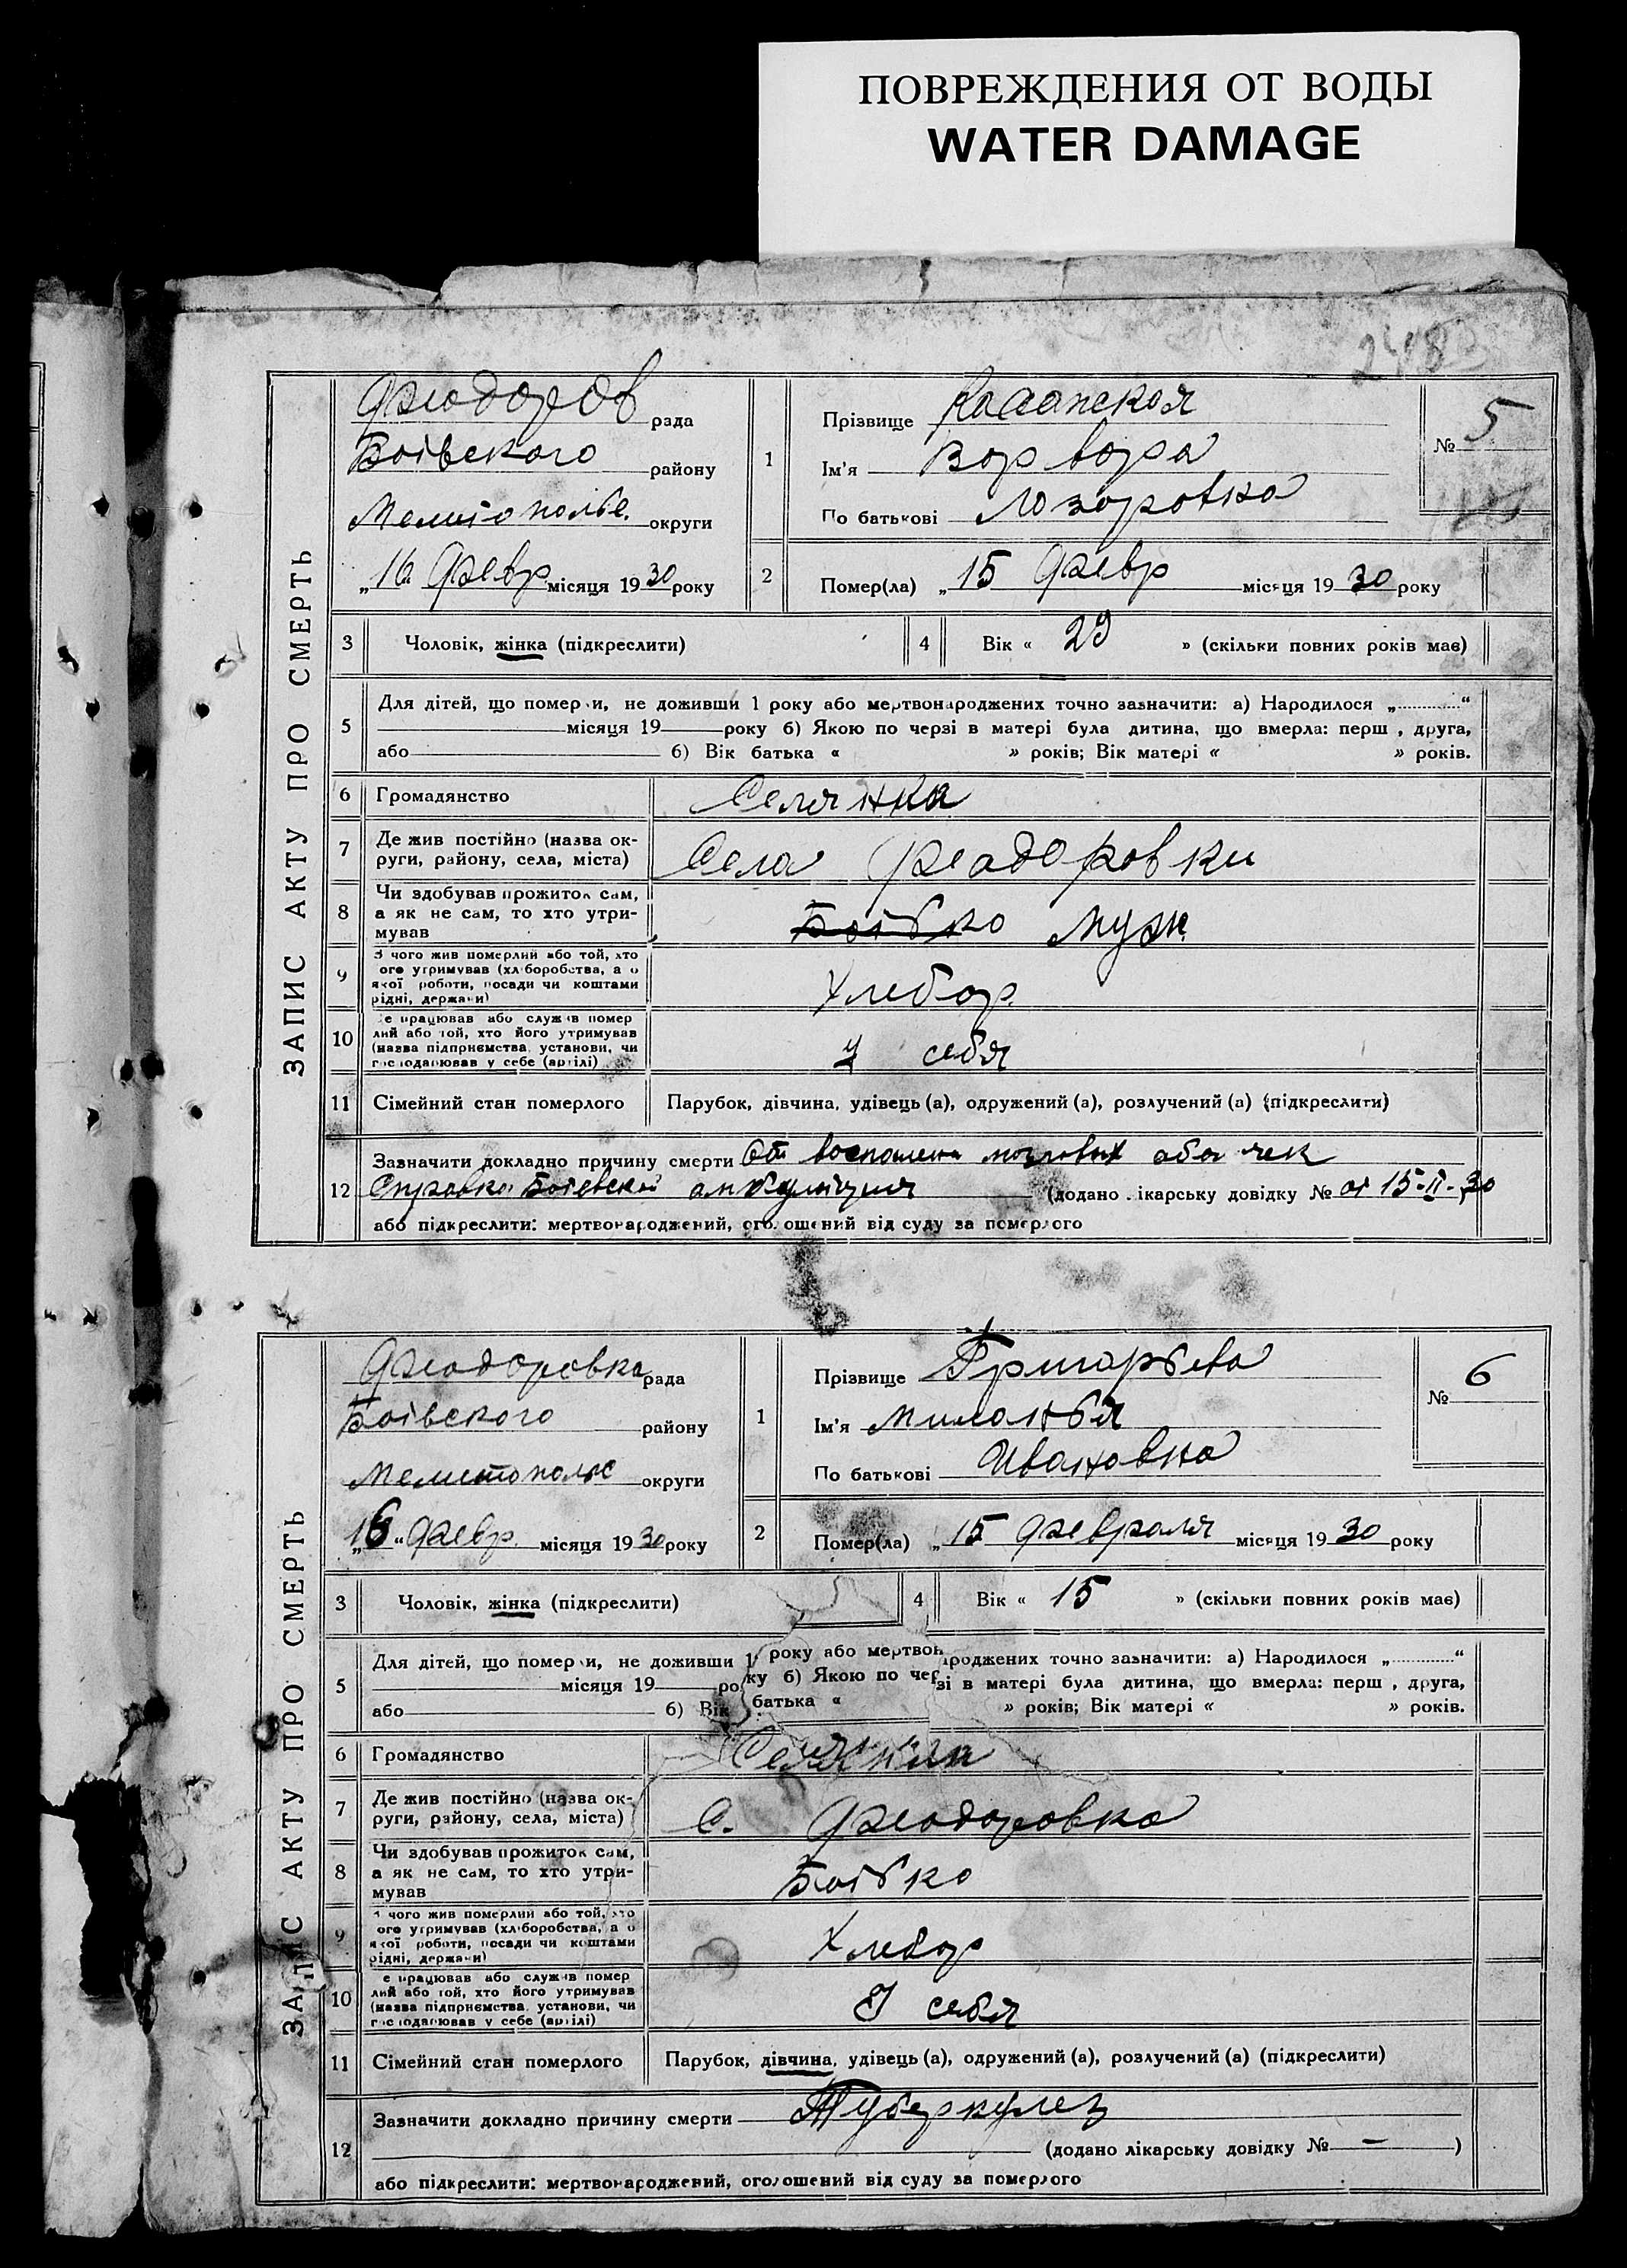 ПОВРЕЖДЕНИЯ ОТ ВОДЫ
WATER DAMAGE
ЗАПИС АКТУ ПРО СМЕРТЬ
Феодоров рада
Боівского району
Мелитополье. округи
„16 Февр місяця 1930 року
1
Прізвище
Ім'я Вор вора
По батькові Лозоровна
№ 5
2
Помер(ла) „15 Февр місяця 1930 року
3 Чоловік, жінка (підкреслити)
4 Вік « 29 » (скільки повних років має)
5 Для дітей, що померли, не доживши 1 року або мертвонароджених точно зазначити: а) Народилося „............“
місяця 19 року б) Якою по черзі в матері була дитина, що вмерла: перш , друга,
або б) Вік батька « » років; Вік матері « » років.
6 Громадянство Селянка
7 Де жив постійно (назва ок-
руги, району, села, міста) Села Феодоровки
8 Чи здобував прожиток сам,
а як не сам, то хто утри-
мував Батько муж
9 З чого жив померлий або той, хто
ого утримував (хліборобства, а о
якої роботи, посади чи коштами
рідні, держави) Хлебор.
10 е працював або служив помер
лий або той, хто його утримував
(назва підприємства, установи, чи
господарював у себе (артілі) У себя
11 Сімейний стан померлого Парубок, дівчина, удівець (а), одружений (а), розлучений (а) (підкреслити)
12 Зазначити докладно причину смерти От воспален мозговых оболочек
Справка Боевской амбулиция (додано лікарську довідку № от 15-II-30
або підкреслити: мертвонароджений, оголошений від суду за померлого
ЗАПИС АКТУ ПРО СМЕРТЬ
Феодоровка рада
Боівского району
Мелитополье округи
„16“ Февр. місяця 1930 року
1
Прізвище Григорьева
Ім'я Миланья
По батькові Ивановна
№ 6
2
Помер(ла) „15 Февраля місяця 1930 року
3 Чоловік, жінка (підкреслити)
4 Вік « 15 » (скільки повних років має)
5 Для дітей, що померли, не доживши 1 року або мертвонароджених точно зазначити: а) Народилося „............“
місяця 19 року б) Якою по черзі в матері була дитина, що вмерла: перш , друга,
або б) Вік батька « » років; Вік матері « » років.
6 Громадянство Селянка
7 Де жив постійно (назва ок-
руги, району, села, міста) С. Феодоровка
8 Чи здобував прожиток сам,
а як не сам, то хто утри-
мував Батько
9 чого жив померлий або той, хто
ого утримував (хліборобства, а о
якої роботи, посади чи коштами
рідні, держави) Хлебор
10 е працював або служив помер
лий або той, хто його утримував
(назва підприємства, установи, чи
господарював у себе (артілі) У себя
11 Сімейний стан померлого Парубок, дівчина, удівець (а), одружений (а), розлучений (а) (підкреслити)
12 Зазначити докладно причину смерти Туберкулез
(додано лікарську довідку № — )
або підкреслити: мертвонароджений, оголошений від суду за померлого